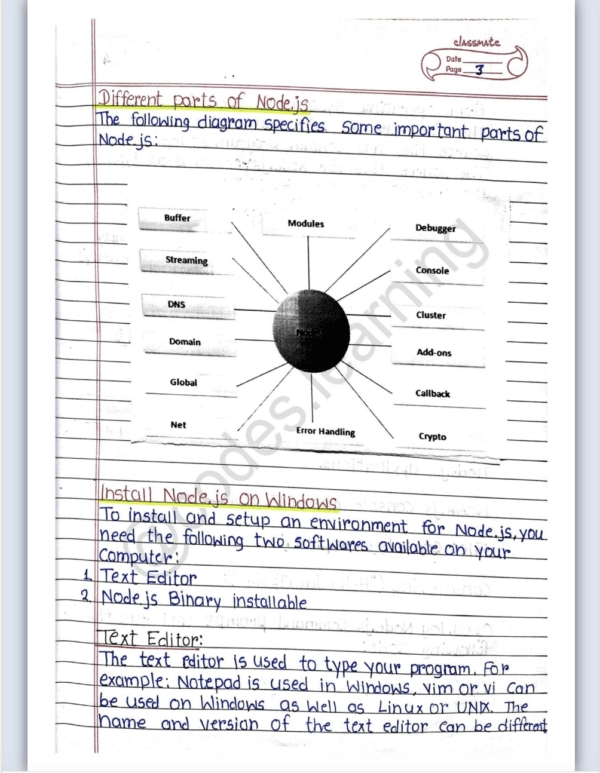 classmate
Date
Page 3
Different parts of Node.js
The following diagram specifies some important parts of
Node.js:
Buffer
Modules
Debugger
Streaming
Console
DNS
Cluster
Node
Domain
Add-ons
Global
Callback
Net
Error Handling
Crypto
@codes.learning
Install Node.js on Windows
To install and setup an environment for Node.js, you
need the following two softwares available on your
Computer:
1. Text Editor
2. Node js Binary installable
Text Editor:
The text editor is used to type your program. For
example: Notepad is used in Windows, vim or vi can
be used on Windows as well as Linux or UNIX. The
name and version of the text editor can be different